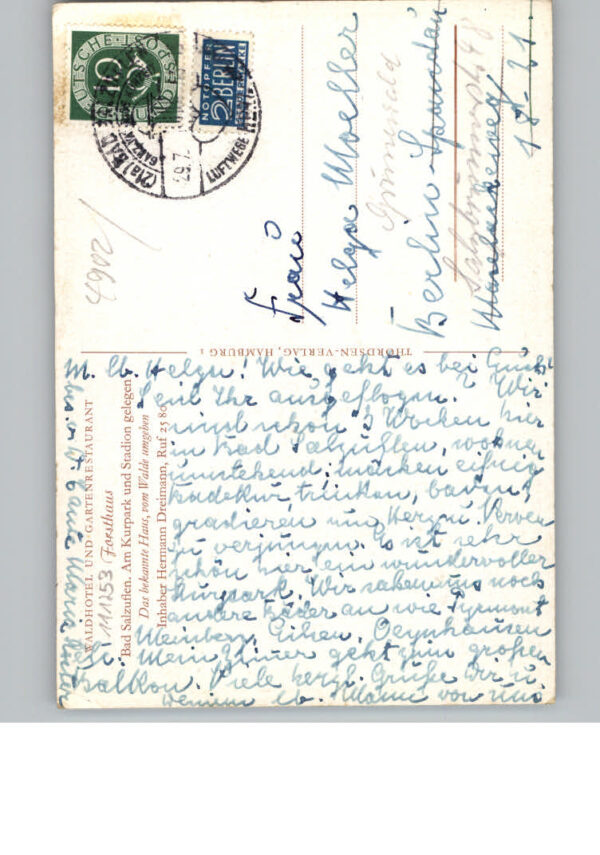 DEUTSCHE BUNDESPOST
10
NOTOPFER
2 BERLIN
STEUERMARKE
(21a) BAD SALZUFLEN
29.7.
LUFTWEGE
4902/
Frau
Helga Moeller
Grunewald
Berlin-Spandau
18-21.
THORDSEN-VERLAG, HAMBURG 1
WALDHOTEL UND GARTENRESTAURANT
111253 Forsthaus
Bad Salzuflen. Am Kurpark und Stadion gelegen
Das bekannte Haus, vom Walde umgeben
Inhaber Hermann Dreimann, Ruf 25 80
M. lb. Helga! Wie geht es bei Euch?
Seid Ihr ausgeflogen? Wir
sind schon 2 Wochen hier
in Bad Salzuflen, wohnen
umstehend, machen eifrig
Badekur, trinken, baden,
gradieren um Herz u. Nerven
zu verjüngen. Es ist sehr
schön hier ein wundervoller
Kurpark. Wir sahen uns noch
andere Bäder an wie Pyrmont
Meinberg, Oeynhausen
Mein Zimmer geht zum großen
Balkon. Viele herzl. Grüße Dir u.
Deinem lb. Mann von uns.